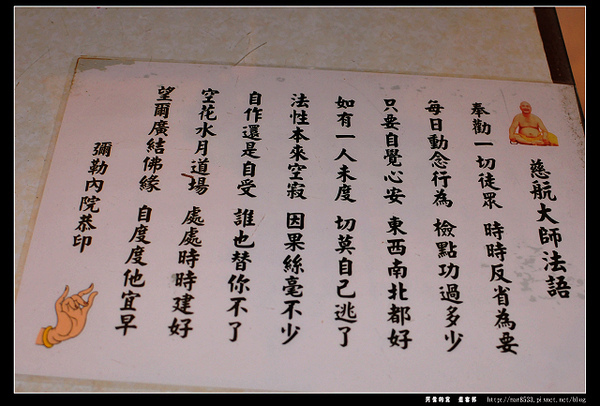 慈航大師法語
奉勸一切徒眾 時時反省為要
每日動念行為 檢點功過多少
只要自覺心安 東西南北都好
如有一人未度 切莫自己逃了
法性本來空寂 因果絲毫不少
自作還是自受 誰也替你不了
空花水月道場 處處時時建好
望爾廣結佛緣 自度度他宜早
彌勒內院恭印